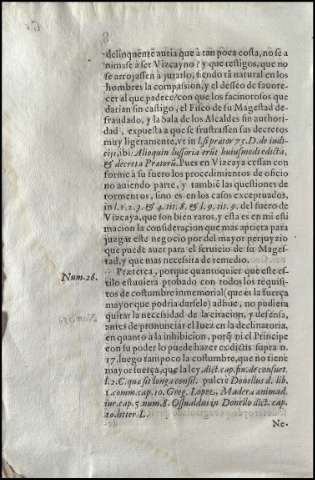 delinquente auria que à tan poca costa, no se a
nimase à ser Vizcayno? y que testigos, que no
se arrojassen à jurarlo, siendo tã natural en los
hombres la compasion, y el desseo de fauore-
cer al que padece? con que los facinorosos que
darian sin castigo, el Fisco de su Magestad de-
fraudado, y la Sala de los Alcaldes sin authori
dad, expuesta a que se frustrassen sus decretos
muy ligeramente, vt in l. si prætor 75. D. de iudi-
cijs, ibi: Alioquin lussoria erũt huiusmodi edicta,
& decreta Prætorũ. Pues en Vizcaya cessan con
forme à su fuero los procedimientos de oficio
no auiendo parte, y tambiẽ las questiones de
tormentos, sino es en los casos exceptuados,
in l. 1. 2. 3. & 4. tit. 8. & l. 9. tit. 9. del fuero de
Vizcaya, que son bien raros, y esta es en mi esti
macion la consideracion que mas aprieta para
juzgar este negocio por del mayor perjuyzio
que puede auer para el seruicio de su Mages-
tad, y que mas necessita de remedio.
Num. 26.
Prætetea, porque quantoquier que este es-
tilo estuuiera probado con todos los requisi-
tos de costumbre inmemorial (que es la fuerça
mayor que podria darsele) adhuc, no pudiera
quitar la necessidad de la citacion, y defensa,
antes de pronunciar el Iuez en la declinatoria,
en quanto a la inhibicion, porq̃ ni el Principe
con su poder lo puede hazer ex dictis supra n.
17. luego tampoco la costumbre, que no tiene
mayor fuerça, que la ley, dict. cap. fin. de consuet.
l. 2. C. quæ sit longa consu. pulcre Donellus d. lib.
1. comm. cap. 10. Greg. Lopez, Madera animad.
iur. cap. 5. num. 8. Osualdus in Donello dict. cap.
10. litter. L.
Ne-